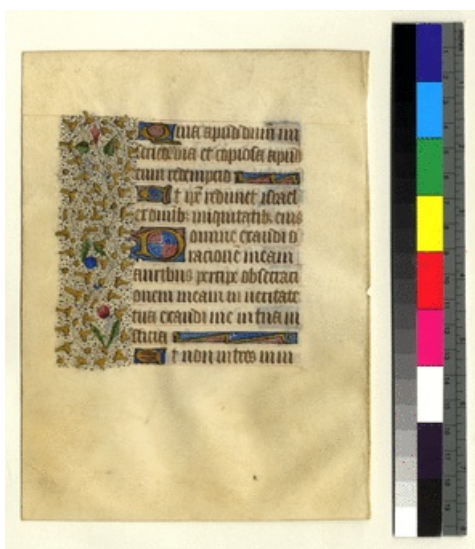 Quia apud dnm mi
sericordia et copiosa apud
eum redempcio
Et ipe redimet israel
ex omnib iniquitatib eius
Domine exaudi o
rationem meam
auribus percipe obsecraci
onem meam in veritate
tua exaudi me in tua iu
sticia
Et non intres in iu